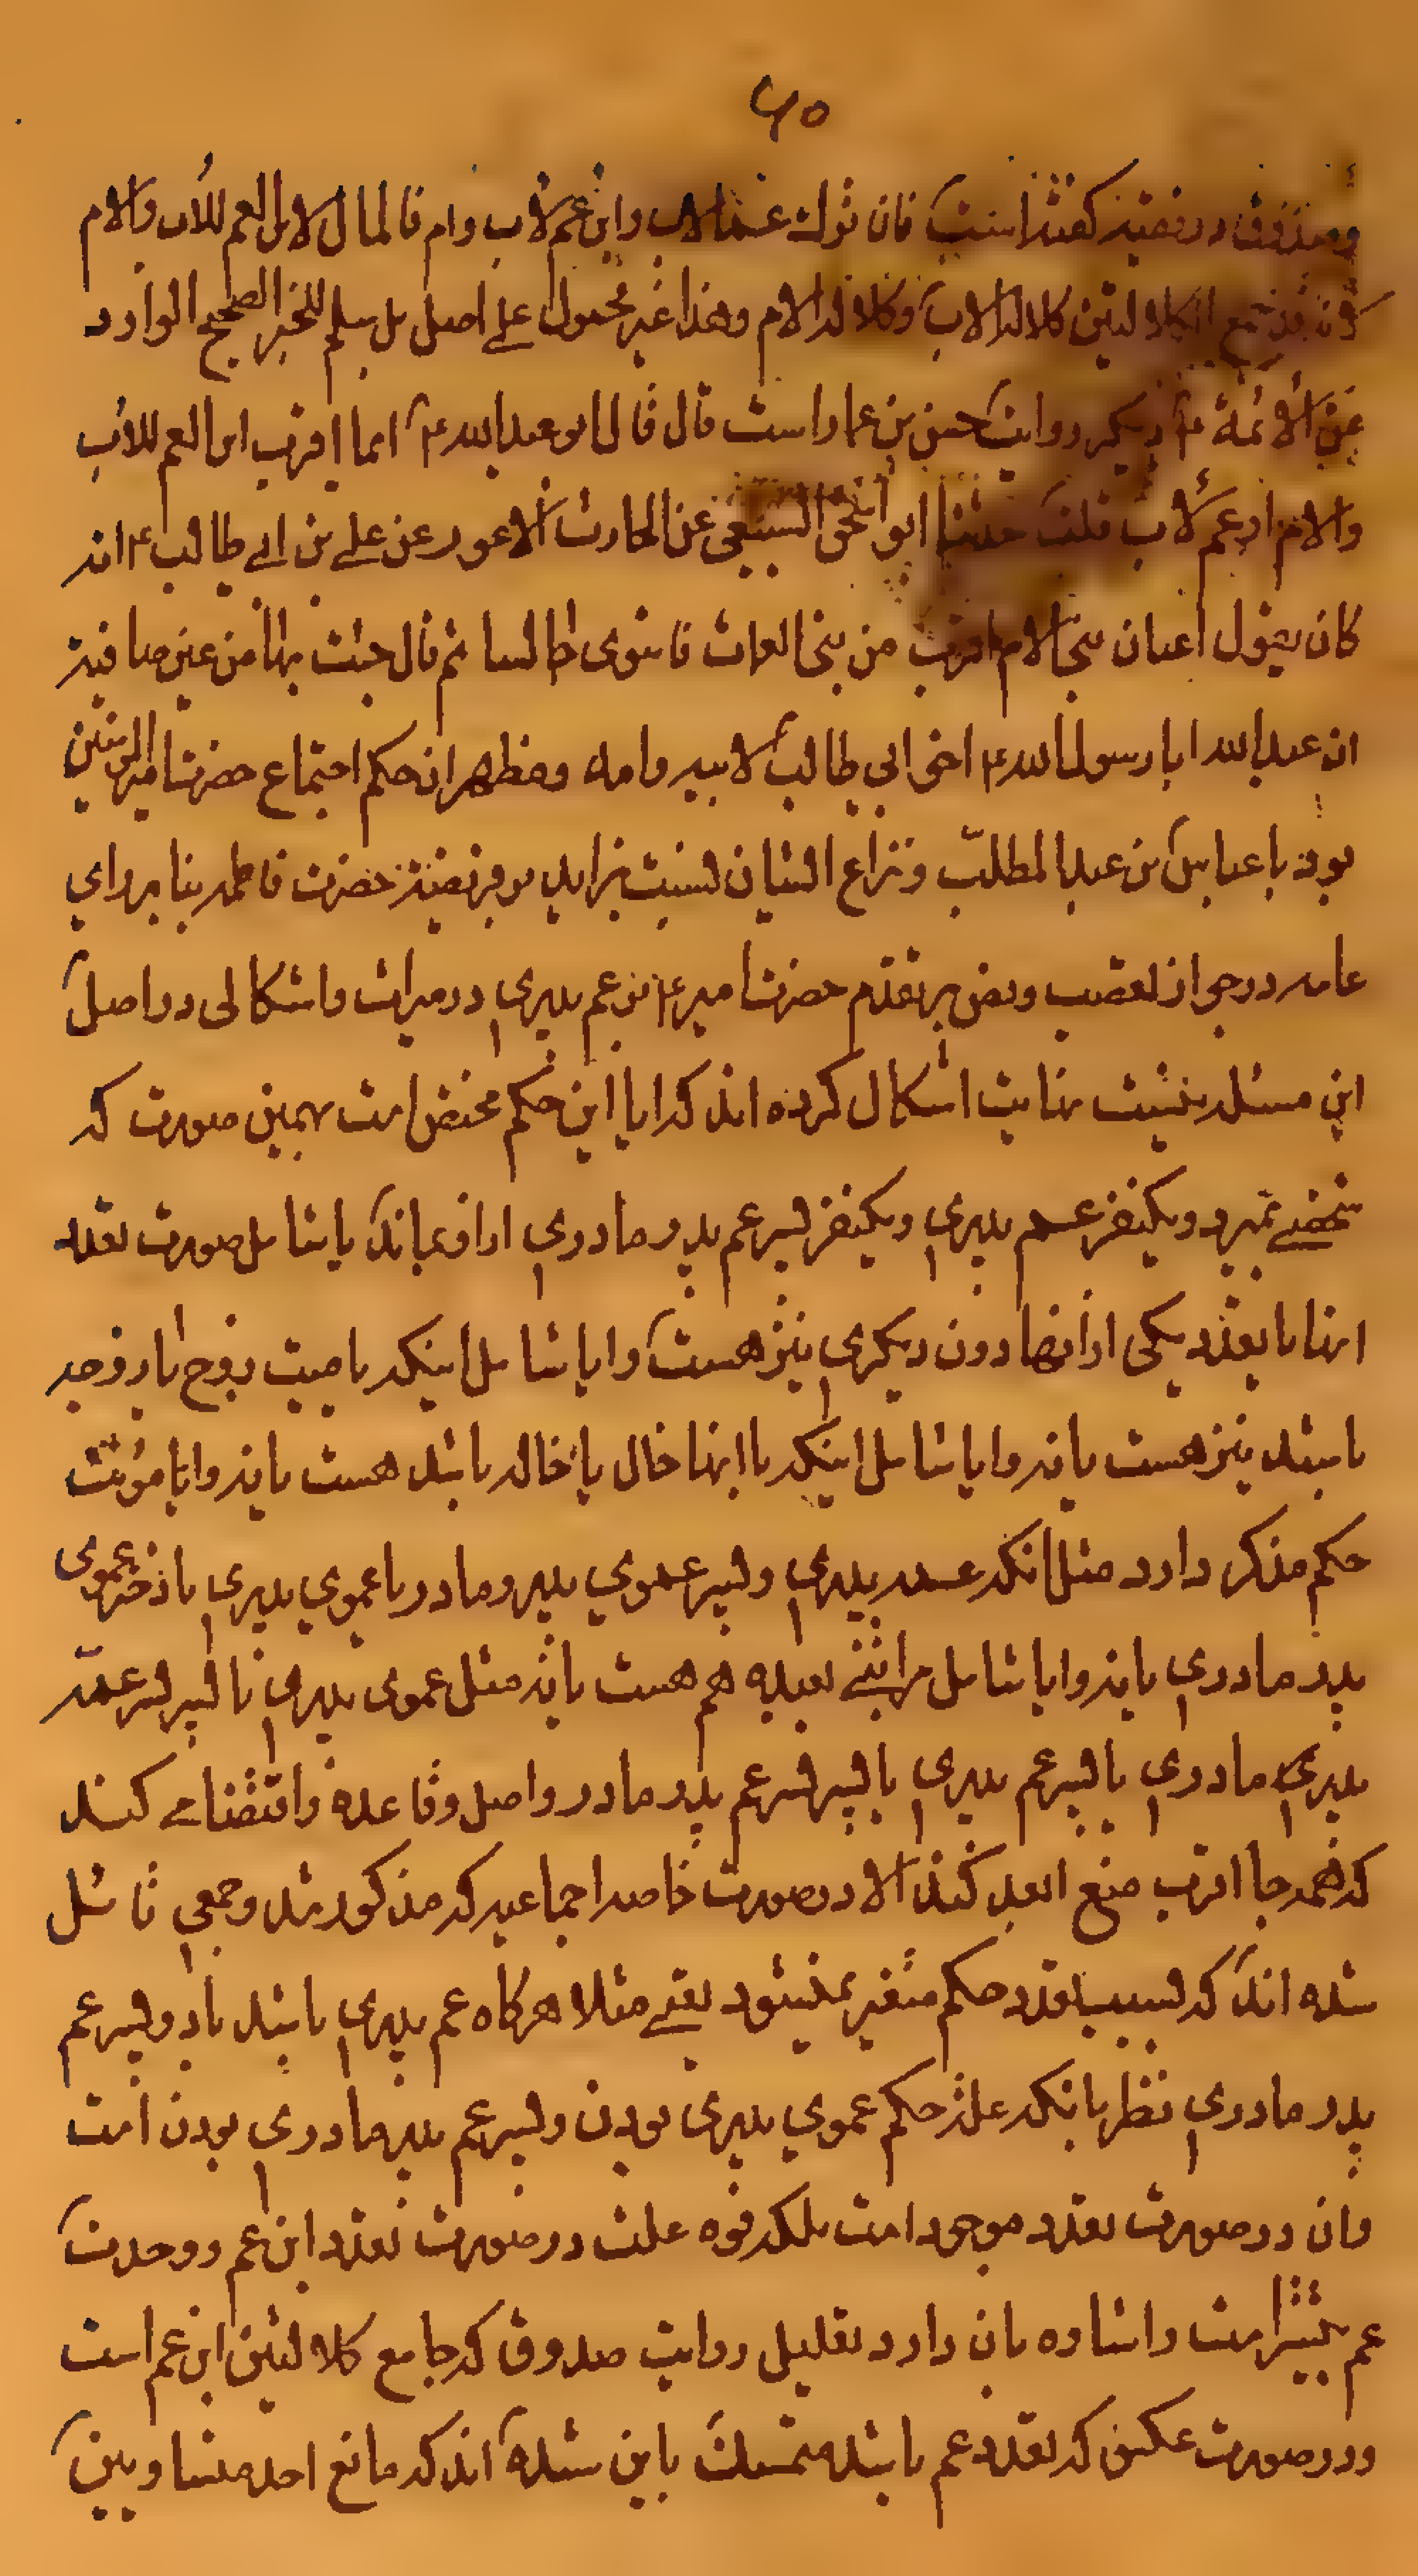 ۶۰
وصدوق در فقیه گفته است فان ترك عما لاب وابن عم لاب وام فالمال لابن العم للاب والام
لانه قد جمع الكلالتين كلالة الاب وكلالة الام وهذا غير محمول على اصل بل مسلم للخبر الصحيح الوارد
عن الائمة ع دیگر روایت حسن بن عمار است قال قال ابو عبدالله ع ایما اقرب ابن العم للاب
والام او عم لاب قلت حدثنا ابو اسحق السبيعى عن الحارث الاعور عن علی بن ابی طالب ع انه
كان يقول اعيان بنی الام اقرب من بنی العلات فاستوى جالسا ثم قال جئت بها من عين صافية
ان عبدالله ابا رسول الله ع اخی ابی طالب لابیه وامه ومظهر ان حکم اجتماع حضرت امیرالمؤمنین
بود با عباس بن عبدالمطلب ونزاع ایشان نسبت بزاید بر فریضه حضرت فاطمه بنا بر رای
عامه در جواز تعصیب ونص بر تقدم حضرت امیر ع بر عم پدری در میراث واشکالی در اصل
این مسئله نیست نهایت اشکال کرده اند که ایا این حکم مختص است بهمین صورت که
شخصی بمیرد ویکنفر عم پدری ویکنفر پسر عم پدر ومادری از او بماند یا شامل صورت تعدد
اینها یا تعدد یکی از انها دون دیگری نیز هست وایا شامل اینکه با میت زوج یا زوجه
باشد نیز هست یا نه وایا شامل اینکه با اینها خال یا خاله باشد هست یا نه وایا مؤنث
حکم مذکر دارد مثل انکه عمه پدری وپسر عموی پدر ومادر یا عموی پدری با دختر عموی
پدر مادری یا نه وایا شامل مراتب بعیده هم هست یا نه مثل عموی پدری با پسر پسر عمه
پدری مادری یا پسر عم پدری با پسر پسر عم پدر مادر واصل وقاعده اقتضا می کند
که همه جا اقرب منع ابعد کند الا در صورت خاصه اجماعیه که مذکور شد وجمعی قائل
شده اند که بسبب تعدد حکم متغیر نمیشود یعنی مثلا هرگاه عم پدری باشد با دو پسر عم
پدر مادری نظر بانکه علة حکم عموی پدری بودن وپسر عم پدر مادری بودن است
وان در صورت تعدد موجود است بلکه قوه علت در صورت تعدد ابن عم ووحدت
عم بیشتر است واشاره بان دارد تعلیل روایت صدوق که جامع کلالتین ابن عم است
ودر صورت عکس که تعدد عم باشد متمسك باین شده اند که مانع احد متساویین